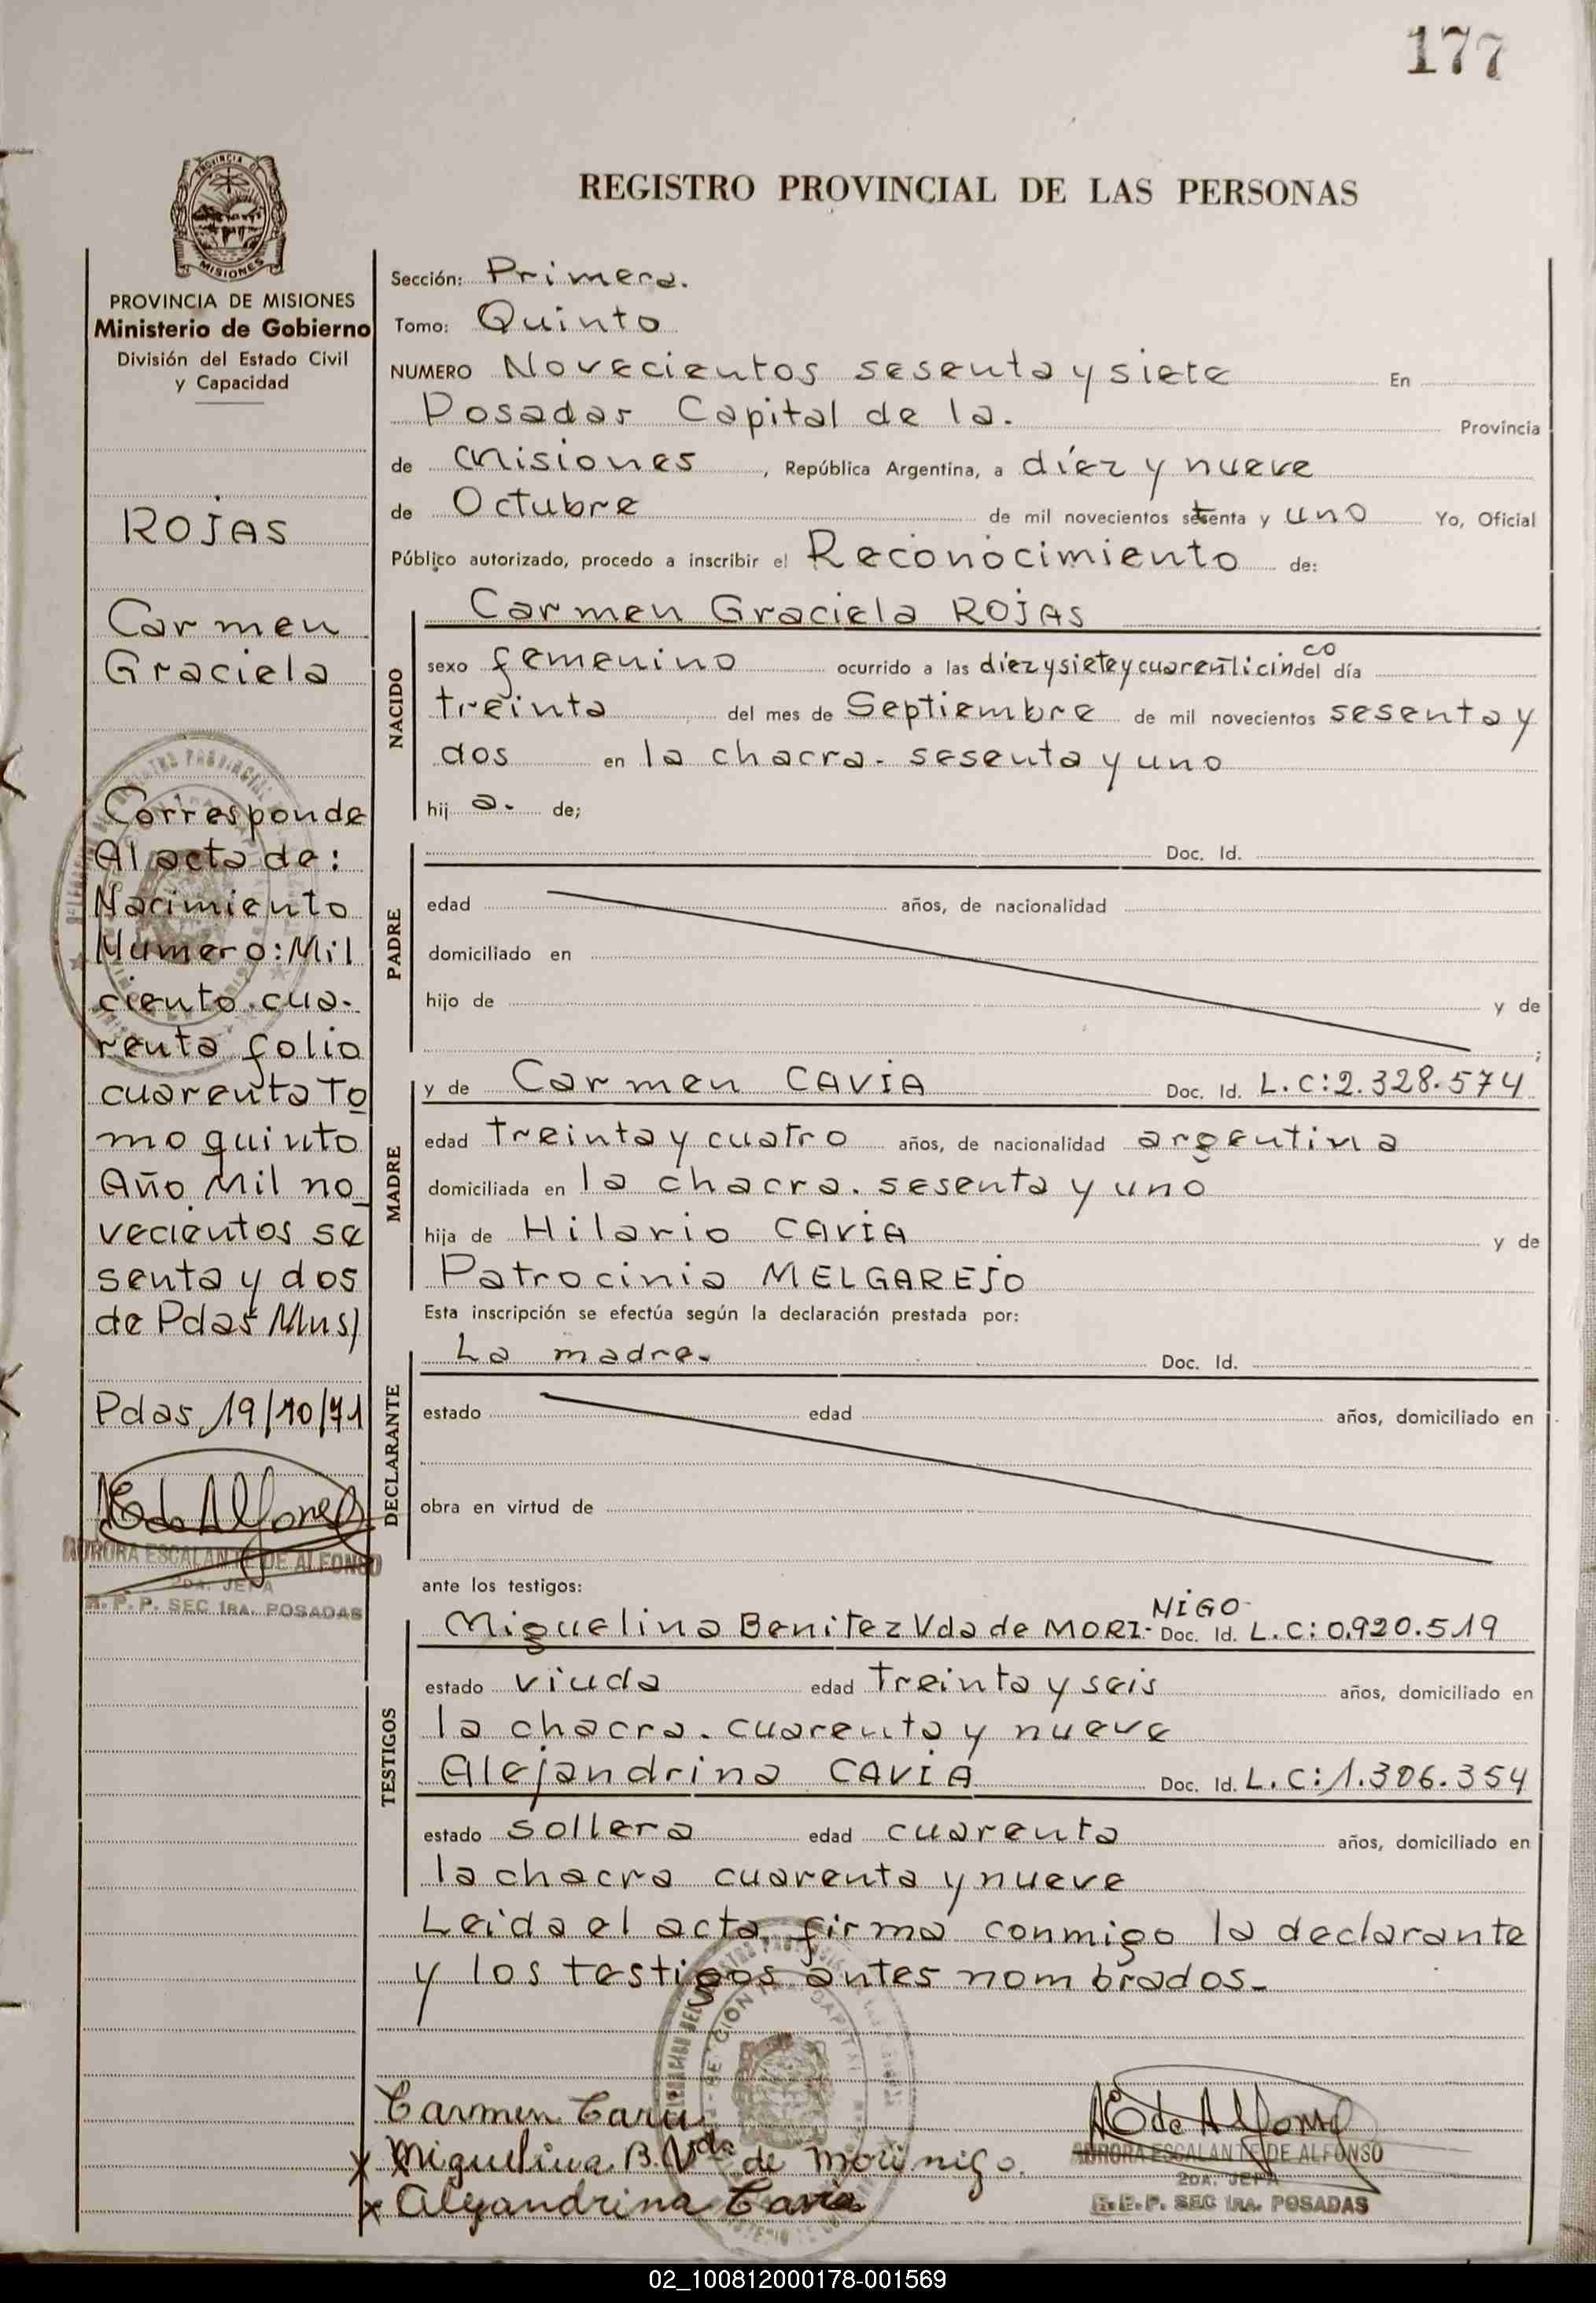 177
REGISTRO PROVINCIAL DE LAS PERSONAS
PROVINCIA DE
MISIONES
PROVINCIA DE MISIONES
Ministerio de Gobierno
División del Estado Civil
y Capacidad
ROJAS
Carmen
Graciela
Corresponde
Al acta de:
Nacimiento
Numero: Mil
ciento cua-
renta folio
cuarenta To
mo quinto
Año Mil no
vecientos se
senta y dos
de Pdas Mns)
Pdas, 19/10/71
E de Alfonso
AURORA ESCALANTE DE ALFONSO
2DA. JEFA
R. P. P. SEC 1RA. POSADAS
Sección: Primera.
Tomo: Quinto
NUMERO Novecientos sesenta y siete En
Posadas Capital de la. Provincia
de Misiones, República Argentina, a díez y nueve
de Octubre de mil novecientos setenta y uno Yo, Oficial
Público autorizado, procedo a inscribir el Reconocimiento de:
NACIDO
Carmen Graciela ROJAS
sexo femenino ocurrido a las díez y siete y cuarenticinco del día
treinta del mes de Septiembre de mil novecientos sesenta y
dos en la chacra. sesenta y uno
hij a. de;
PADRE
Doc. Id.
edad años, de nacionalidad
domiciliado en
hijo de y de
;
MADRE
y de Carmen CAVIA Doc. Id. L.C:2.328.574
edad treinta y cuatro años, de nacionalidad argentina
domiciliada en la chacra. sesenta y uno
hija de Hilario CAVIA y de
Patrocinia MELGAREJO
Esta inscripción se efectúa según la declaración prestada por:
DECLARANTE
La madre. Doc. Id.
estado edad años, domiciliado en
obra en virtud de
ante los testigos:
TESTIGOS
Miguelina Benitez Vda de MORI-NIGO- Doc. Id. L.C: 0.920.519
estado viuda edad treinta y seis años, domiciliado en
la chacra. cuarenta y nueve
Alejandrina CAVIA Doc. Id. L.C:1.306.354
estado soltera edad cuarenta años, domiciliado en
la chacra cuarenta y nueve
Leida el acta firma conmigo la declarante
y los testigos antes nombrados.-
Carmen Cavia
x Miguelina B. Vda de Morinigo.
x Alejandrina Cavia
E de Alfonso
AURORA ESCALANTE DE ALFONSO
2DA. JEFA
R. P. P. SEC 1RA. POSADAS
02_100812000178-001569